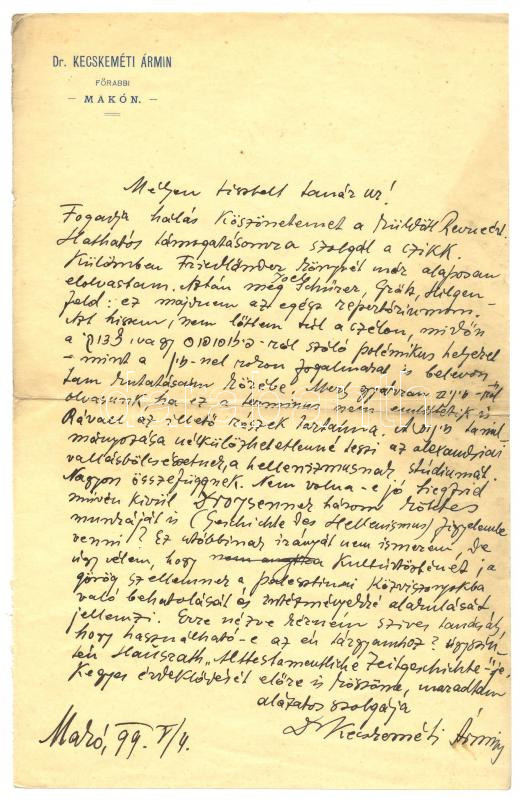 Dr. KECSKEMÉTI ÁRMIN
FŐRABBI
– MAKÓN. –
Mélyen tisztelt tanár úr!
Fogadja hálás köszönetemet a küldött Revueért.
Hathatós támogatásomra szolgál a czikk.
Különben Friedländer könyvét már alaposan
elolvastam. Aztán még Joel, Schürer, Grätz, Hilgen-
feld: ez majdnem az egész repertóriumom.
Azt hiszem, nem lőttem túl a czélon, midőn
a vagy -ról szóló polémikus helyeket
– mint a -nel rokon fogalmakat is belevon-
tam kutatásaim körébe. Mert gyakran -ról
olvasunk, ha ez a terminus nem említtetik is
Rávall az illető részek tartalma. A tanul-
mányozása nélkülözhetetlenné teszi az alexandriai
vallásbölcsészetnek, a hellenizmusnak stúdiumát.
Nagyon összefüggnek. Nem volna-e jó Siegfried
művén kívül Droysennek három kötetes
munkáját is (Geschichte des Hellenismus) figyelembe
venni? Ez utóbbinak irányát nem ismerem, de
úgy vélem, hogy kultúrtörténet ja
görög szellemnek a palesztinai közviszonyokba
való behatolását és alakulását
jellemzi. Erre nézve kérném szíves tanácsát,
hogy használható-e az én tárgyamhoz? úgyszin-
tén Hausrath „Alttestamentliche Zeitgeschichte"-je.
Kegyes érdeklődését előre is köszöni, maradtam
alázatos szolgája
Dr Kecskeméti Ármin
Makó, 99. V/4.